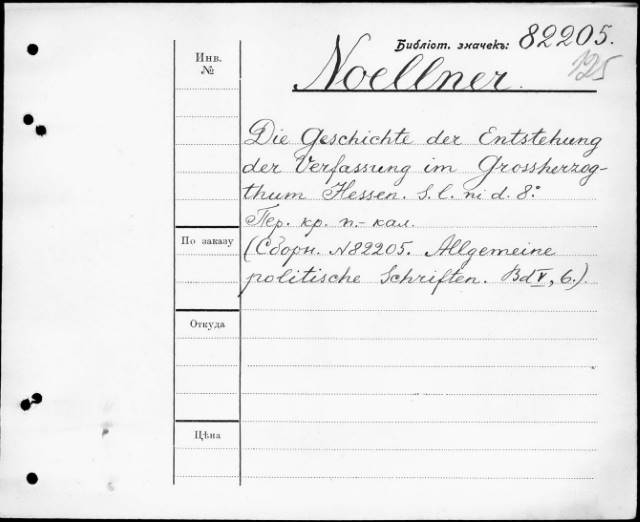 Библіот. значекъ: 82205.
125
Инв.
№
Noellner.
Die Geschichte der Entstehung
der Verfassung im Grossherzog-
thum Hessen. S. l. ni d. 8°.
Пер. кр. п.-кал.
По заказу
(Сборн. №82205. Allgemeine
politische Schriften. Bd V, 6.)
Откуда
Цѣна